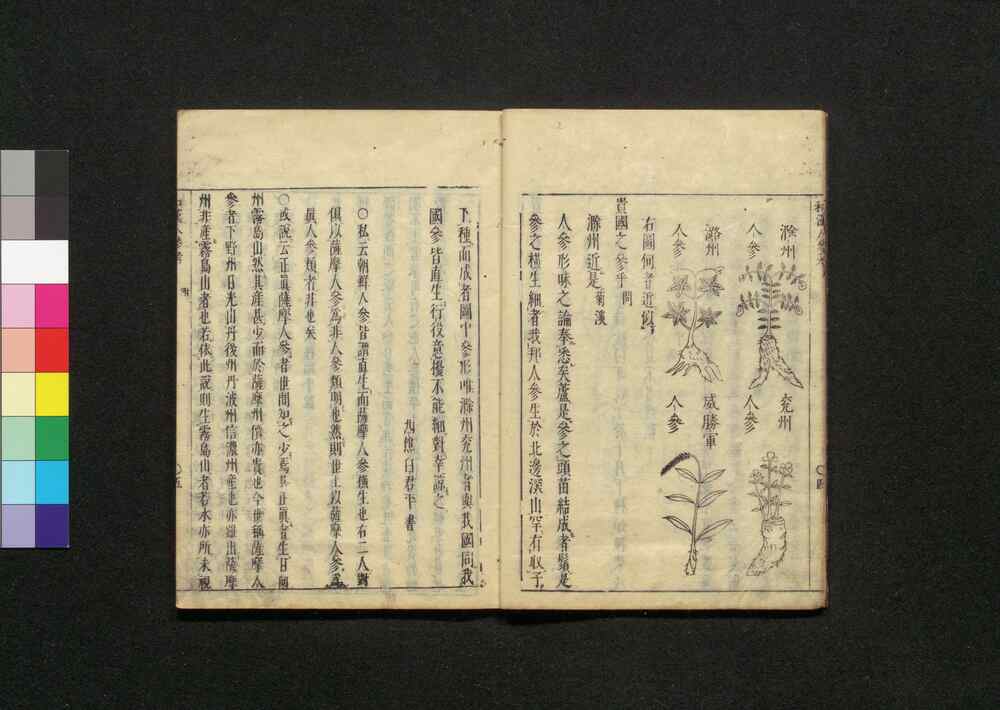 滁州
人參
兖州
人參
潞州
人參
威勝軍
人參
右圖何者近似
貴國之參乎 問
滁州近是 菊溪
人參形味之論奉悉矣蘆是參之頭苗結成者鬚是
參之橫生細者我邦人參生於北邊深山罕有取子
下種而成者圖中參形唯滁州兖州者與我國同我
國參皆直生行役意擾不能細對幸諒之
九樵白君平書
〇私云朝鮮人參皆謂直生而薩摩人參橫生也右二人對
俱以薩摩人參爲非人參類明也然則世上以薩摩人參爲
眞人參類者非也矣
〇或說云正眞薩摩人參者世間知之少焉其正眞者生日向
州霧島山然其產甚少而於薩摩州價亦貴也今世稱薩摩人
參者下野州日光山丹後州丹波州信濃州產也亦雖出薩摩
州非產霧島山者也若依此說則生霧島山者若水亦所未視